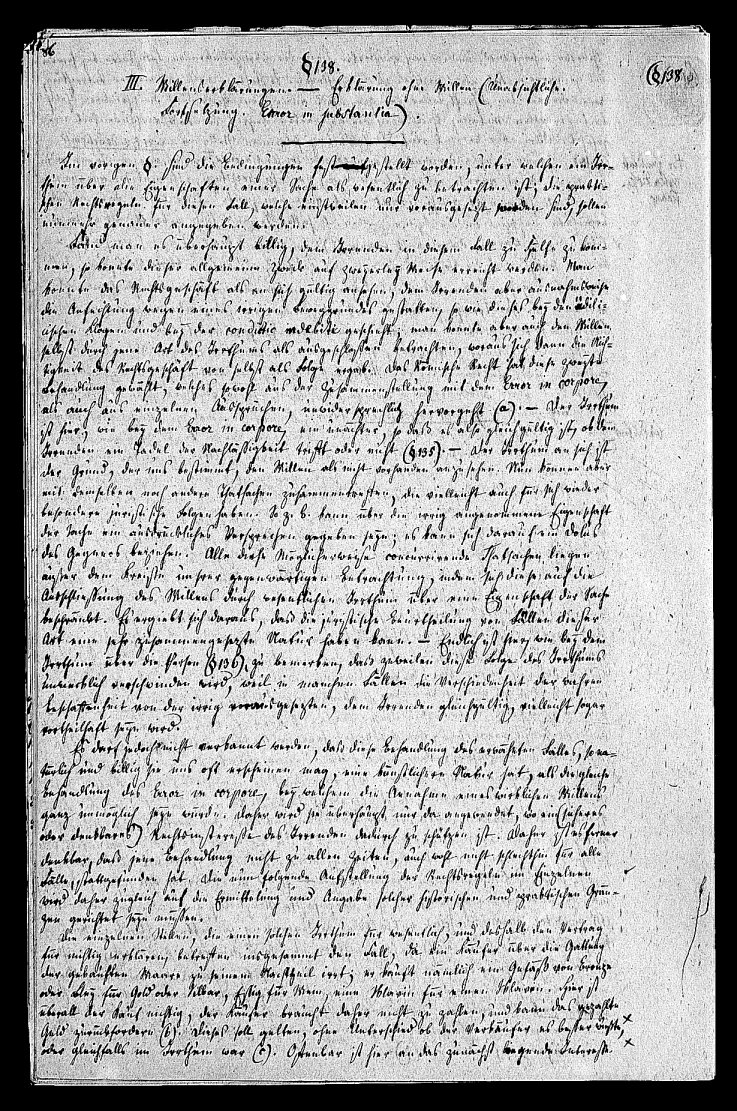 86
§138.
(§138
III. Willenserklärungen. — Erklärung ohne Willen. (Unabsichtliche.
Fortsetzung. Error in substantia).
Im vorigen §. sind die Bedingungen festgestellt worden, unter welchen ein Irr-
thum über die Eigenschaften einer Sache als wesentlich zu betrachten ist; die prakti-
schen Rechtsregeln für diesen Fall, welche einstweilen nur vorausgesetzt worden sind, sollen
nunmehr genauer angegeben werden.
Fand man es überhaupt billig, dem Irrenden in diesem Fall zu Hülfe zu kom-
men, so konnte dieser allgemeine Zweck auf zweyerley Weise erreicht werden. Man
konnte das Rechtsgeschäft als an sich gültig ansehen, dem Irrenden aber ausnahmsweise
die Anfechtung wegen eines irrigen Beweggrundes gestatten, so wie dieses bey den ädili-
cischen Klagen und bey der condictio indebiti geschieht; man konnte aber auch den Willen
selbst durch jene Art des Irrthums als ausgeschlossen betrachten, woraus sich dann die Nich-
tigkeit des Rechtsgeschäft von selbst als Folge ergab. Das Römische Recht hat diese zweyte
Behandlung gewählt, welches sowohl aus der Zusammenstellung mit dem Error in corpore,
als auch aus einzelnen Aussprüchen, unwidersprechlich hervorgeht (a). — Der Irrthum
ist hier, wie bey dem Error in corpore, ein unächter, so daß es also gleichgültig ist, ob den
Irrenden ein Tadel der Nachlässigkeit trifft oder nicht (§135). — Der Irrthum an sich ist
der Grund, der uns bestimmt, den Willen als nicht vorhanden anzusehen. Nun können aber
mit demselben noch andere Thatsachen zusammentreffen, die vielleicht auch für sich wieder
besondere juristische Folgen haben. So z. B. kann über die irrig angenommene Eigenschaft
der Sache ein ausdrückliches Versprechen gegeben seyn; es kann sich darauf ein Dolus
des Gegners beziehen. Alle diese möglicherweise concurrirende Thatsachen liegen
außer dem Kreise unsrer gegenwärtigen Betrachtung, indem sich diese auf die
Ausschließung des Willens durch wesentlichen Irrthum über eine Eigenschaft der Sache
beschränkt. Es ergiebt sich daraus, daß die juristische Beurtheilung von Fällen dieser
Art eine sehr zusammengesetzte Natur haben kann. — Endlich ist hier, wie bey dem
Irrthum über die Person (§136), zu bemerken, daß zuweilen diese Folge des Irrthums
unmerklich verschwinden wird, weil in manchen Fällen die Verschiedenheit der wahren
Beschaffenheit von der irrig vorausgesetzten, dem Irrenden gleichgültig, vielleicht sogar
vortheilhaft seyn wird.
Es darf jedoch nicht verkannt werden, daß diese Behandlung des erwähnten Falles, so na-
türlich und billig sie uns oft erscheinen mag, eine künstlichere Natur hat, als die gleiche
Behandlung des Error in corpore, bey welchem die Annahme eines wirklichen Willens
ganz unmöglich seyn würde. Daher wird sie überhaupt nur da angewendet, wo ein sicheres
oder denkbares Rechtsinteresse des Irrenden dadurch zu schützen ist. Daher ist es ferner
denkbar, daß jene Behandlung nicht zu allen Zeiten, auch wohl nicht schlechthin für alle
Fälle, stattgefunden hat. Die nun folgende Aufstellung der Rechtsregeln im Einzelnen
wird daher zugleich auf die Ermittelung und Angabe solcher historischen und praktischen Grän-
zen gerichtet seyn müssen.
Die einzelnen Stellen, die einen solchen Irrthum für wesentlich, und deshalb den Vertrag
für nichtig erklären, betreffen insgesammt den Fall, da ein Käufer über die Gattung
der gekauften Waare zu seinem Nachtheil irrt; er kauft nämlich ein Gefäß von Bronze
oder Bley für Gold oder Silber, Essig für Wein, eine Sklavin für einen Sklaven. Hier ist
überall der Kauf nichtig, der Käufer braucht daher nicht zu zahlen, und kann das gezahlte
Geld zurückfordern (b). Dieses soll gelten, ohne Unterschied ob der Verkäufer es besser wußte,
oder gleichfalls im Irrthum war (c). Offenbar ist hier an das zunächst liegende Interesse